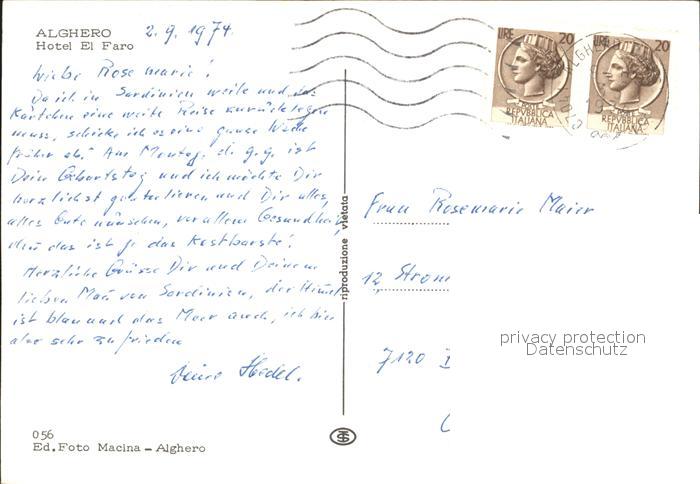 ALGHERO
Hotel El Faro
2.9.1974.
Liebe Rosemarie!
Da ich in Sardinien weile und das
Kärtchen eine weite Reise zurücklegen
muss, schicke ich es eine ganze Woche
früher ab. Am Montag, d. 9.9. ist
Dein Geburtstag und ich möchte Dir
herzlichst gratulieren und Dir alles,
alles Gute wünschen, vor allem Gesundheit,
denn das ist ja das Kostbarste!
Herzliche Grüsse Dir und Deinem
lieben Max von Sardinien, der Himmel
ist blau und das Meer auch, ich bin
also sehr zufrieden
Deine Hedel.
056
Ed. Foto Macina - Alghero
riproduzione vietata
LIRE 20
POSTE
REPVBBLICA
ITALIANA
LIRE 20
POSTE
REPVBBLICA
ITALIANA
Frau Rosemarie Maier
12, Strom
7120
privacy protection
Datenschutz